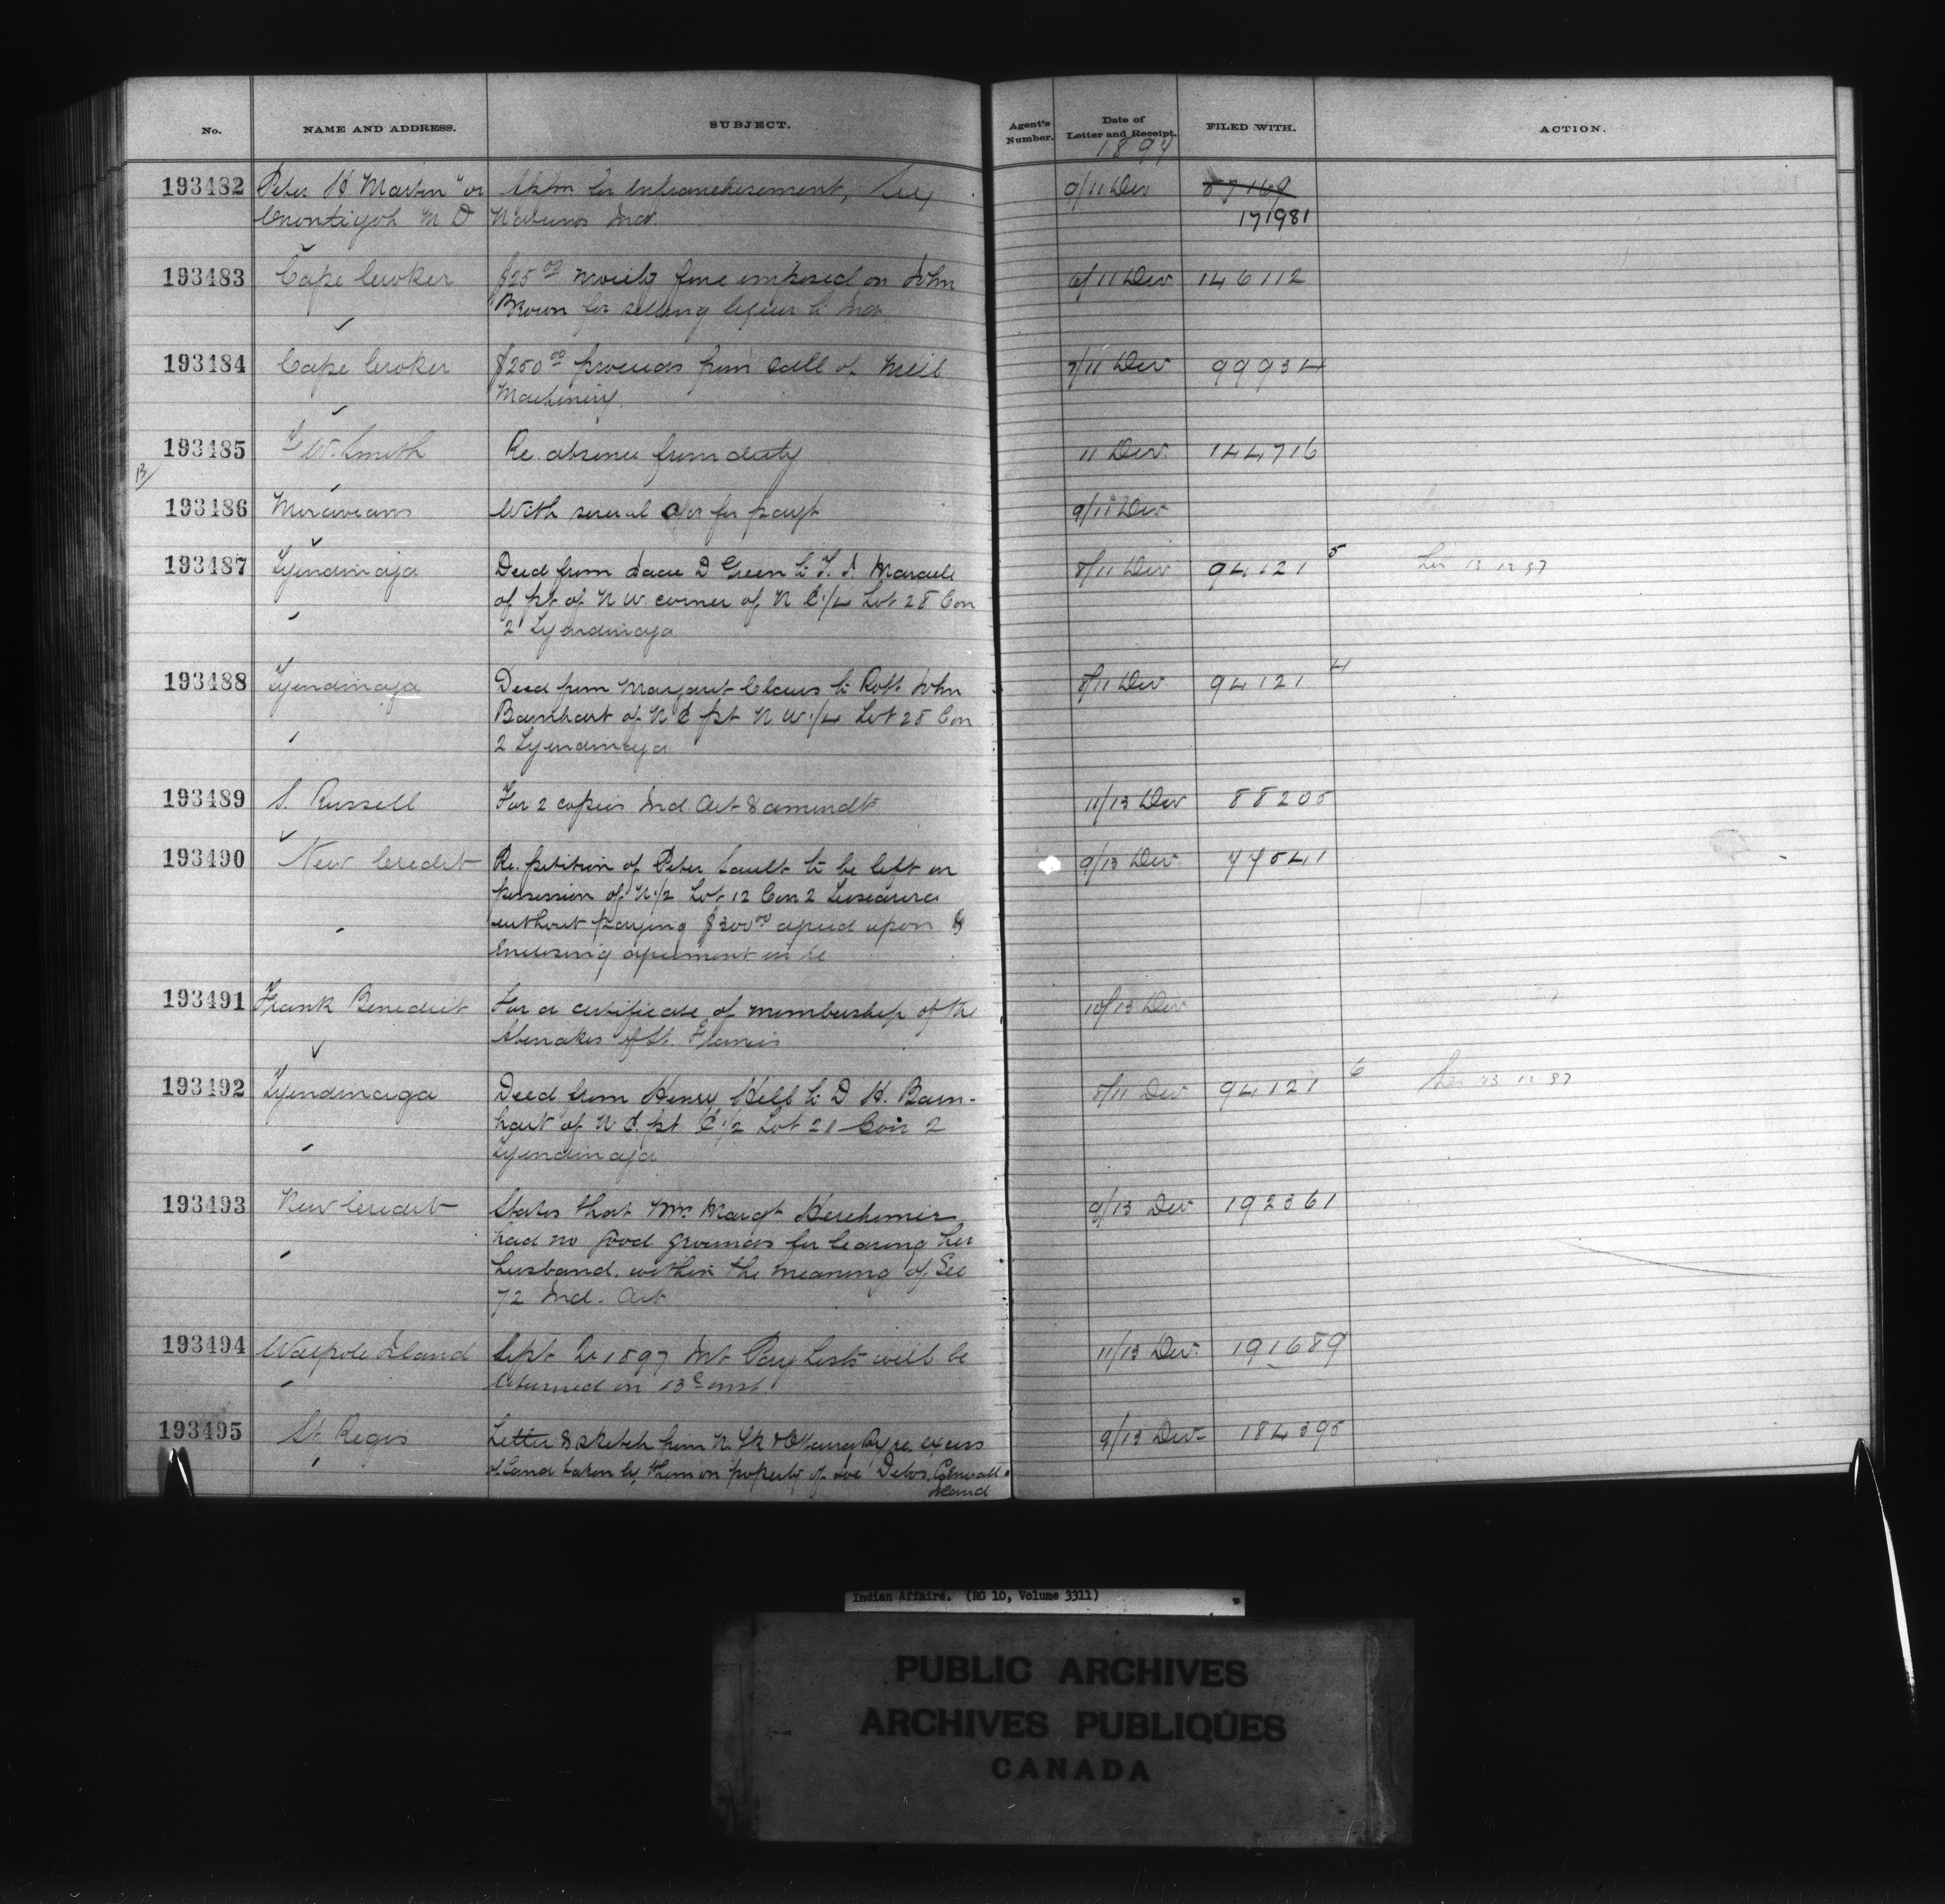 No. NAME AND ADDRESS. SUBJECT. Agent's Number. Date of Letter and Receipt. FILED WITH. ACTION.
1897
193482 Peter H Martin "or for Enfranchisement, 9/11 Dec 87169
M D Inds. 171981
193483 Cape Croker $25.00 moiety fine imposed on John 6/11 Dec 146112
Brown for selling liquor to Inds
193484 Cape Croker $250.00 proceeds from sale of Mill 7/11 Dec 99934
Machinery.
193485 Smith Re. absence from duty 11 Dec. 144716
193486 Moravians With several for payt 9/11 Dec
193487 Tyendinaga Deed from Isaac D Green to Maracle 8/11 Dec 94121 5 13 12 97
of pt of N W. corner of N E 1/4 Lot 28 Con
2 Tyendinaga
193488 Tyendinaga Deed from Margaret Claus to Robt John 8/11 Dec 94121 4
Barnhart of N E pt N W 1/4 Lot 28 Con
2 Tyendinaga
193489 S. Russell For 2 copies Ind. Act & amendts 11/13 Dec 88205
193490 New Credit Re. petition of Peter Sault to be left in 9/13 Dec. 77541
possession of N 1/2 Lot 12 Con 2 Tuscarora
without paying $300.00 agreed upon &
enclosing agreement in re
193491 Frank Benedict For a certificate of membership of the 10/13 Dec
Abenakis of St. Francis
193492 Tyendinaga Deed from Henry Hill to D H. Barn- 8/11 Dec 94121 6 13 12 97
hart of N E. pt. E 1/2 Lot 21 Con 2
Tyendinaga
193493 New Credit States that Mrs Margt Herchimer 9/13 Dec 192361
had no good grounds for leaving her
husband. within the meaning of Sec
72 Ind. Act
193494 Walpole Island Sept Qr 1897 Int. Pay Lists will be 11/13 Dec. 191689
returned on 13th inst.
193495 St Regis Letter & sketch from N. Yk & Ottawa Ry re. excess 9/13 Dec 184395
of land taken by them on property of Cornwall
Island
Indian Affairs. (RG 10, Volume 3311)
PUBLIC ARCHIVES
ARCHIVES PUBLIQUES
CANADA